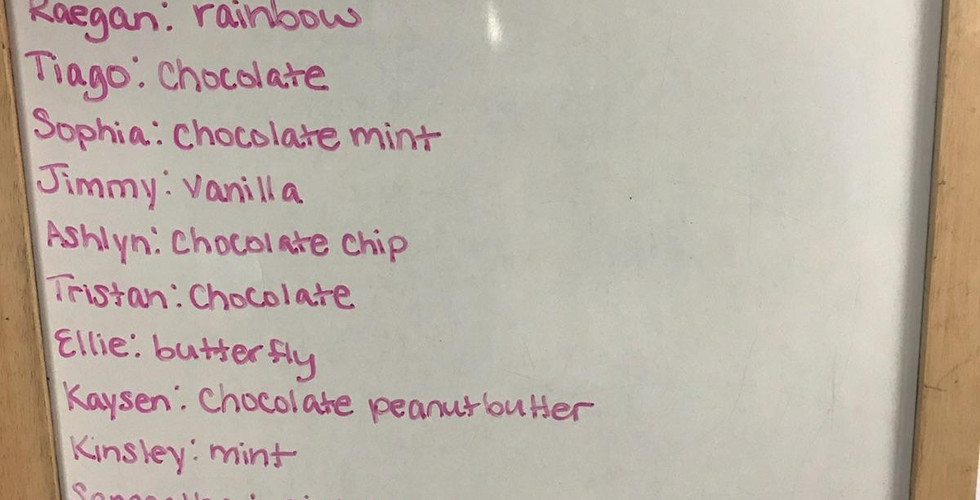 Raegan: rainbow
Tiago: Chocolate
Sophia: Chocolate mint
Jimmy: Vanilla
Ashlyn: Chocolate Chip
Tristan: Chocolate
Ellie: butterfly
Kaysen: Chocolate peanutbutter
Kinsley: mint